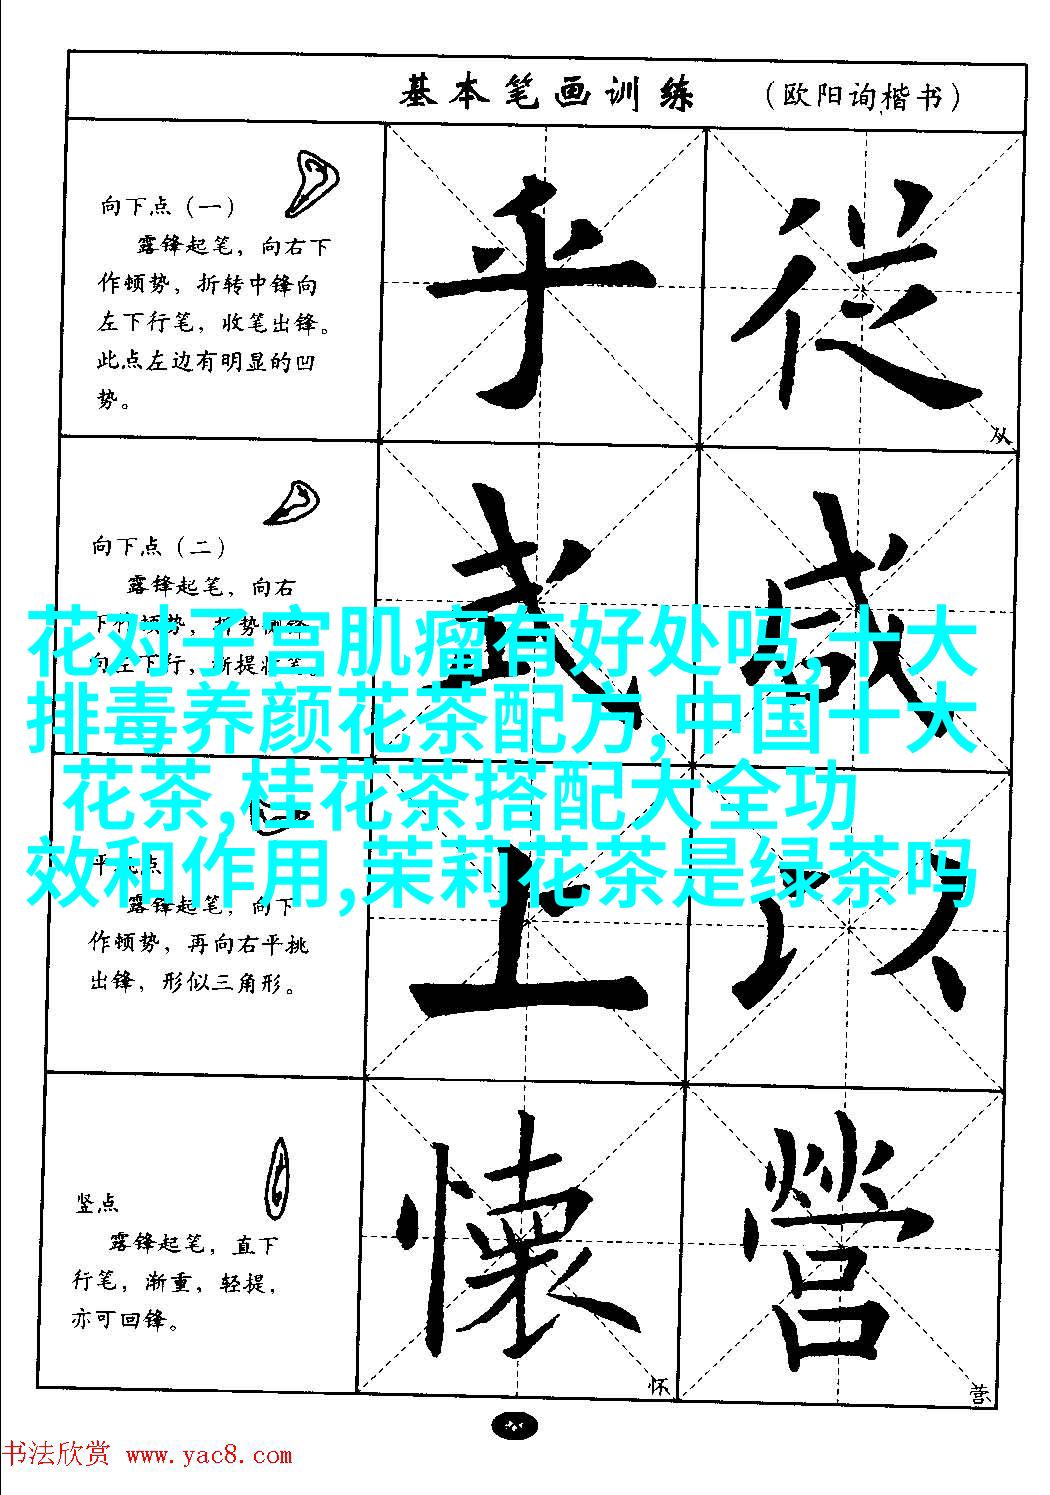 基本笔画训练 （欧阳询楷书）
向下点（一）
露锋起笔，向右下
作顿势，折转中锋向
左下行笔，收笔出锋。
此点左边有明显的凹
势。
乎 從
从
向下点（二）
露锋起笔，向右
下作顿势，折势侧锋
向左下行，渐提收笔。
武 咸
花对子宫肌瘤有好处吗,十大
排毒养颜花茶配方,中国十大
花茶,桂花茶搭配大全功
效和作用,茉莉花茶是绿茶吗
平挑点
露锋起笔，向下
作顿势，再向右平挑
出锋，形似三角形。
上 以
竖点
露锋起笔，直下
行笔，渐重，轻提，
亦可回锋。
懷 營
怀 营
书法欣赏 www.yac8.com